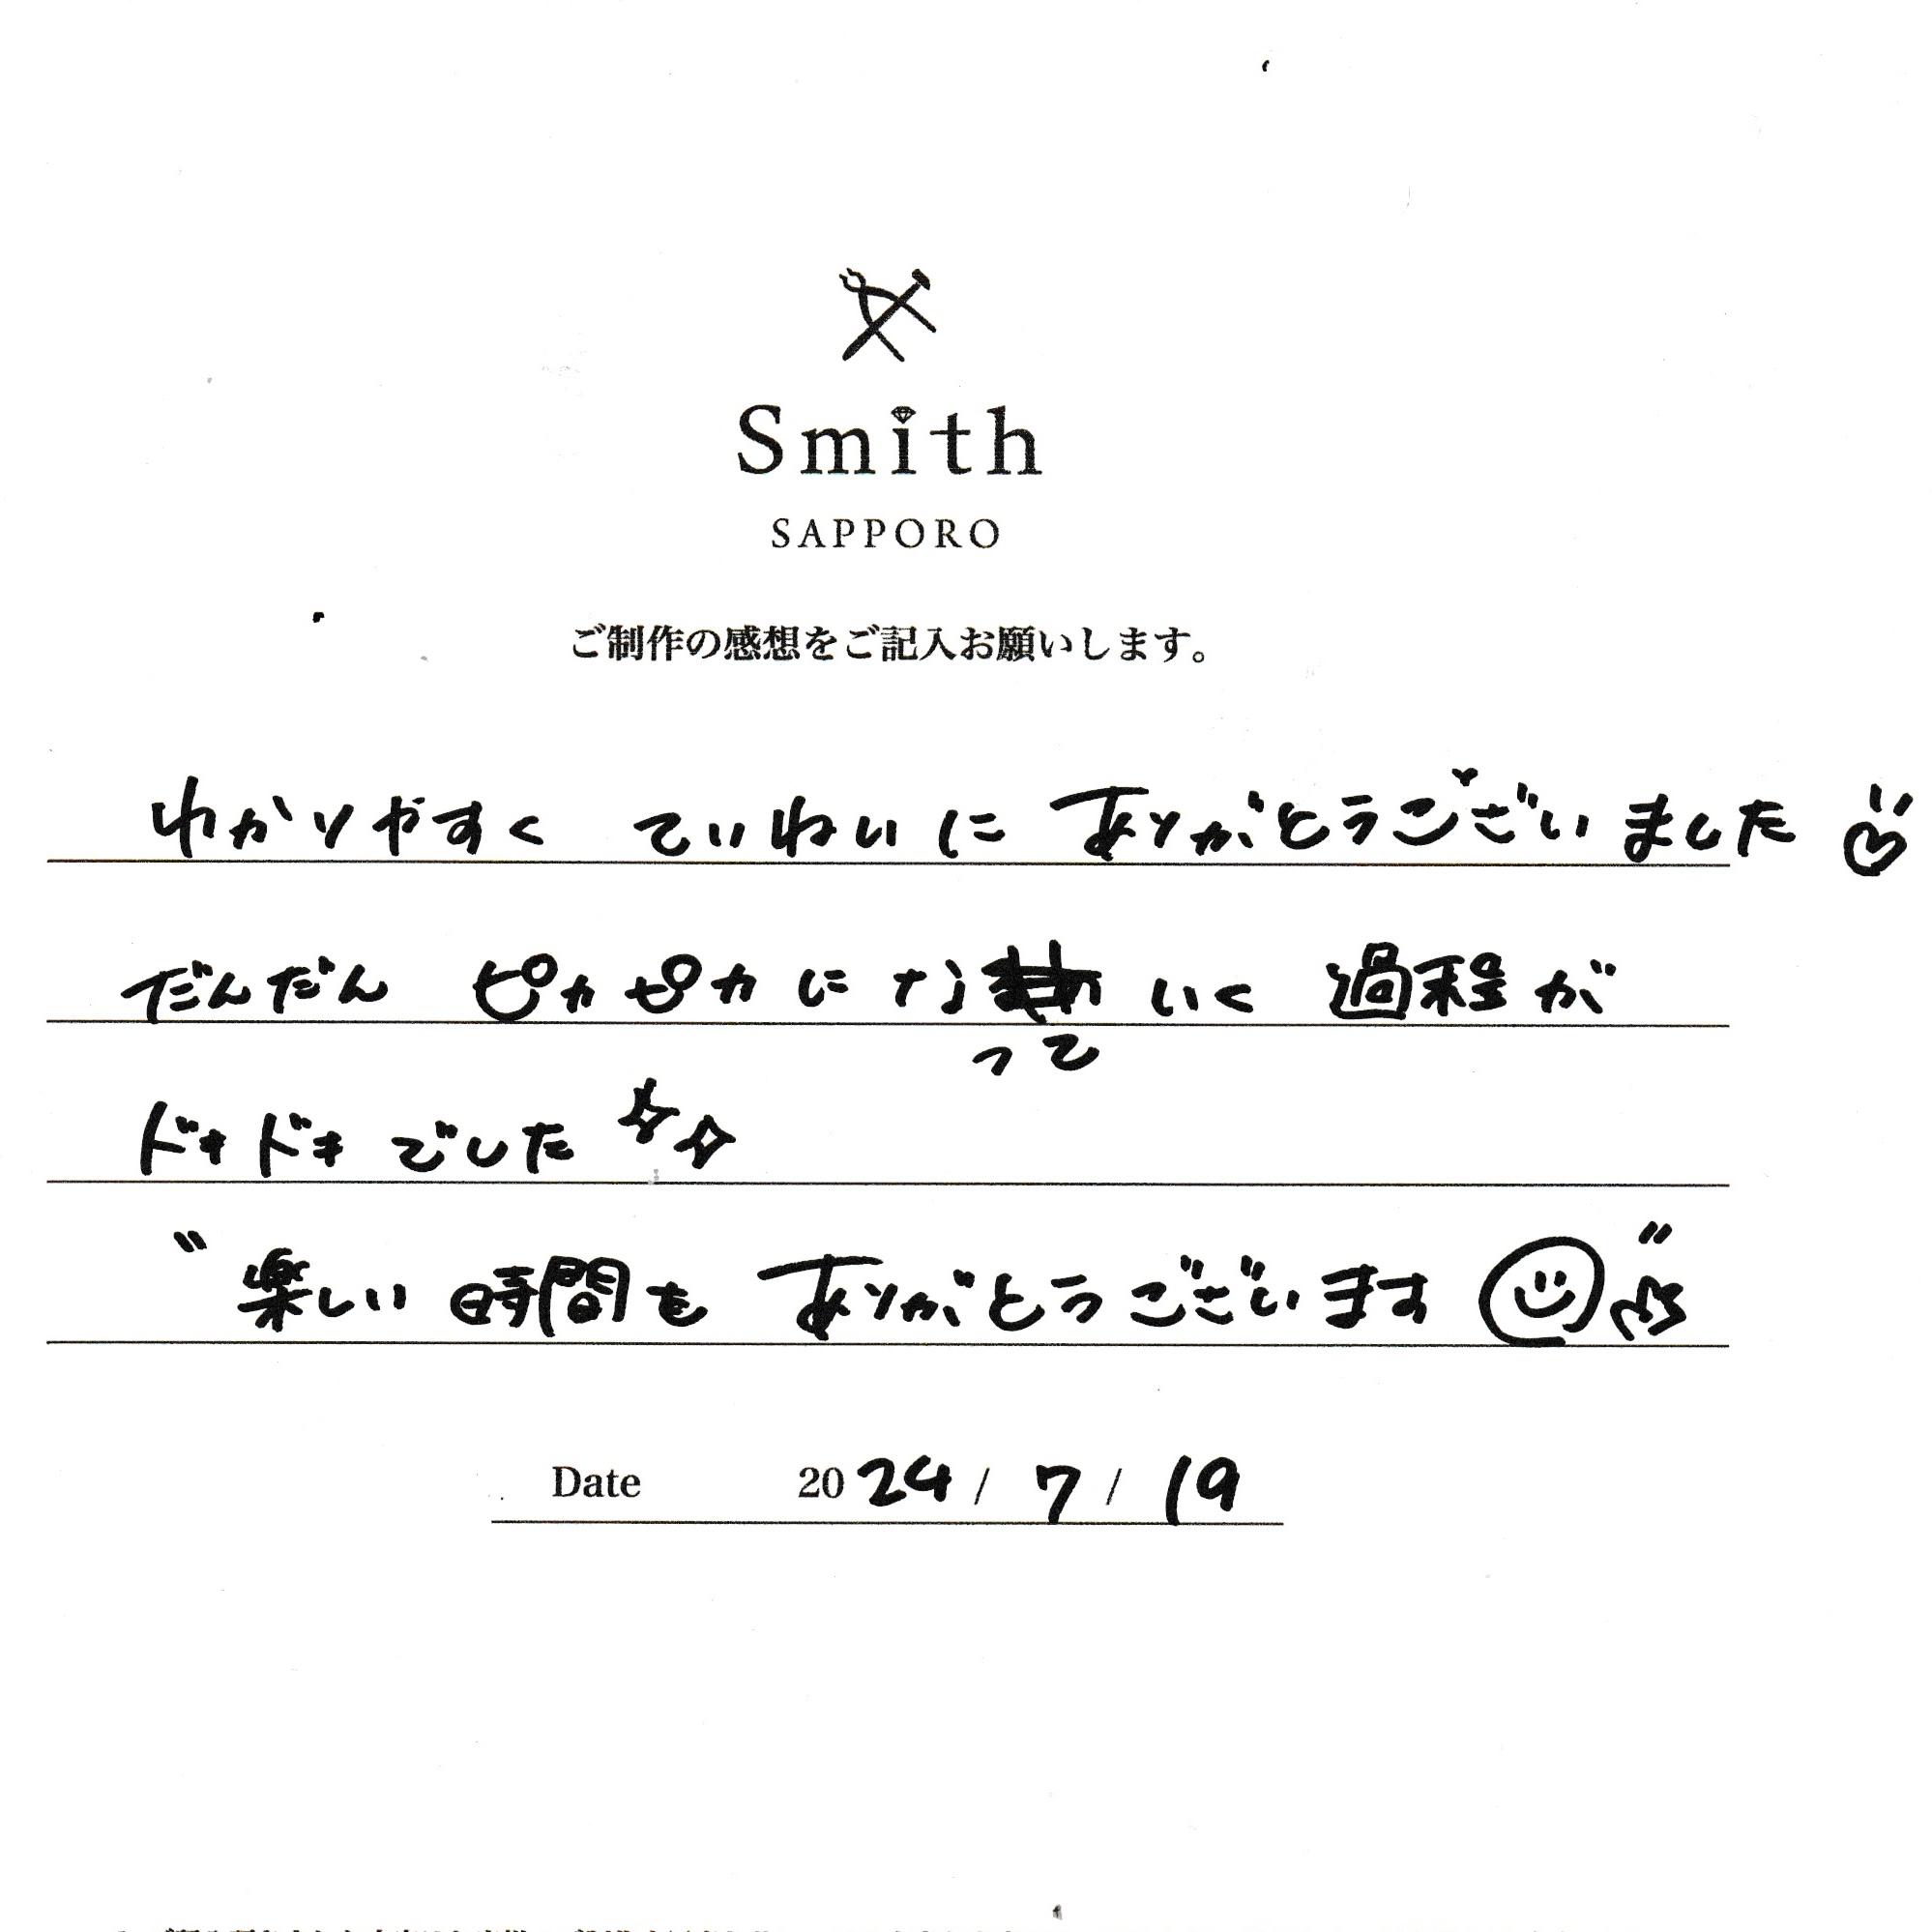 Smith
SAPPORO
ご制作の感想をご記入お願いします。
わかりやすく ていねいに ありがとうございました
だんだん ピカピカに な いく 過程が
って
ドキドキ でした
"楽しい 時間も ありがとうございます"
Date 2024 / 7 / 19